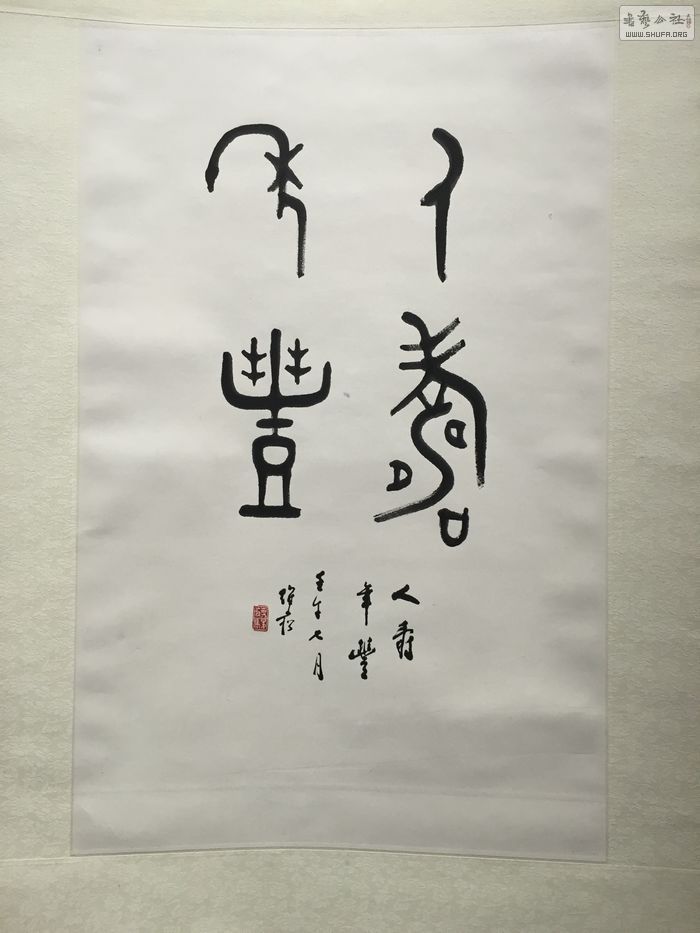 人壽
年豐
人壽
年豐
壬午七月
書藝公社
WWW.SHUFA.ORG